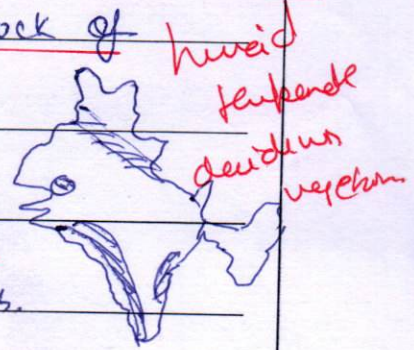 ock of
humid
temperate
deciduous
vegetation
s.